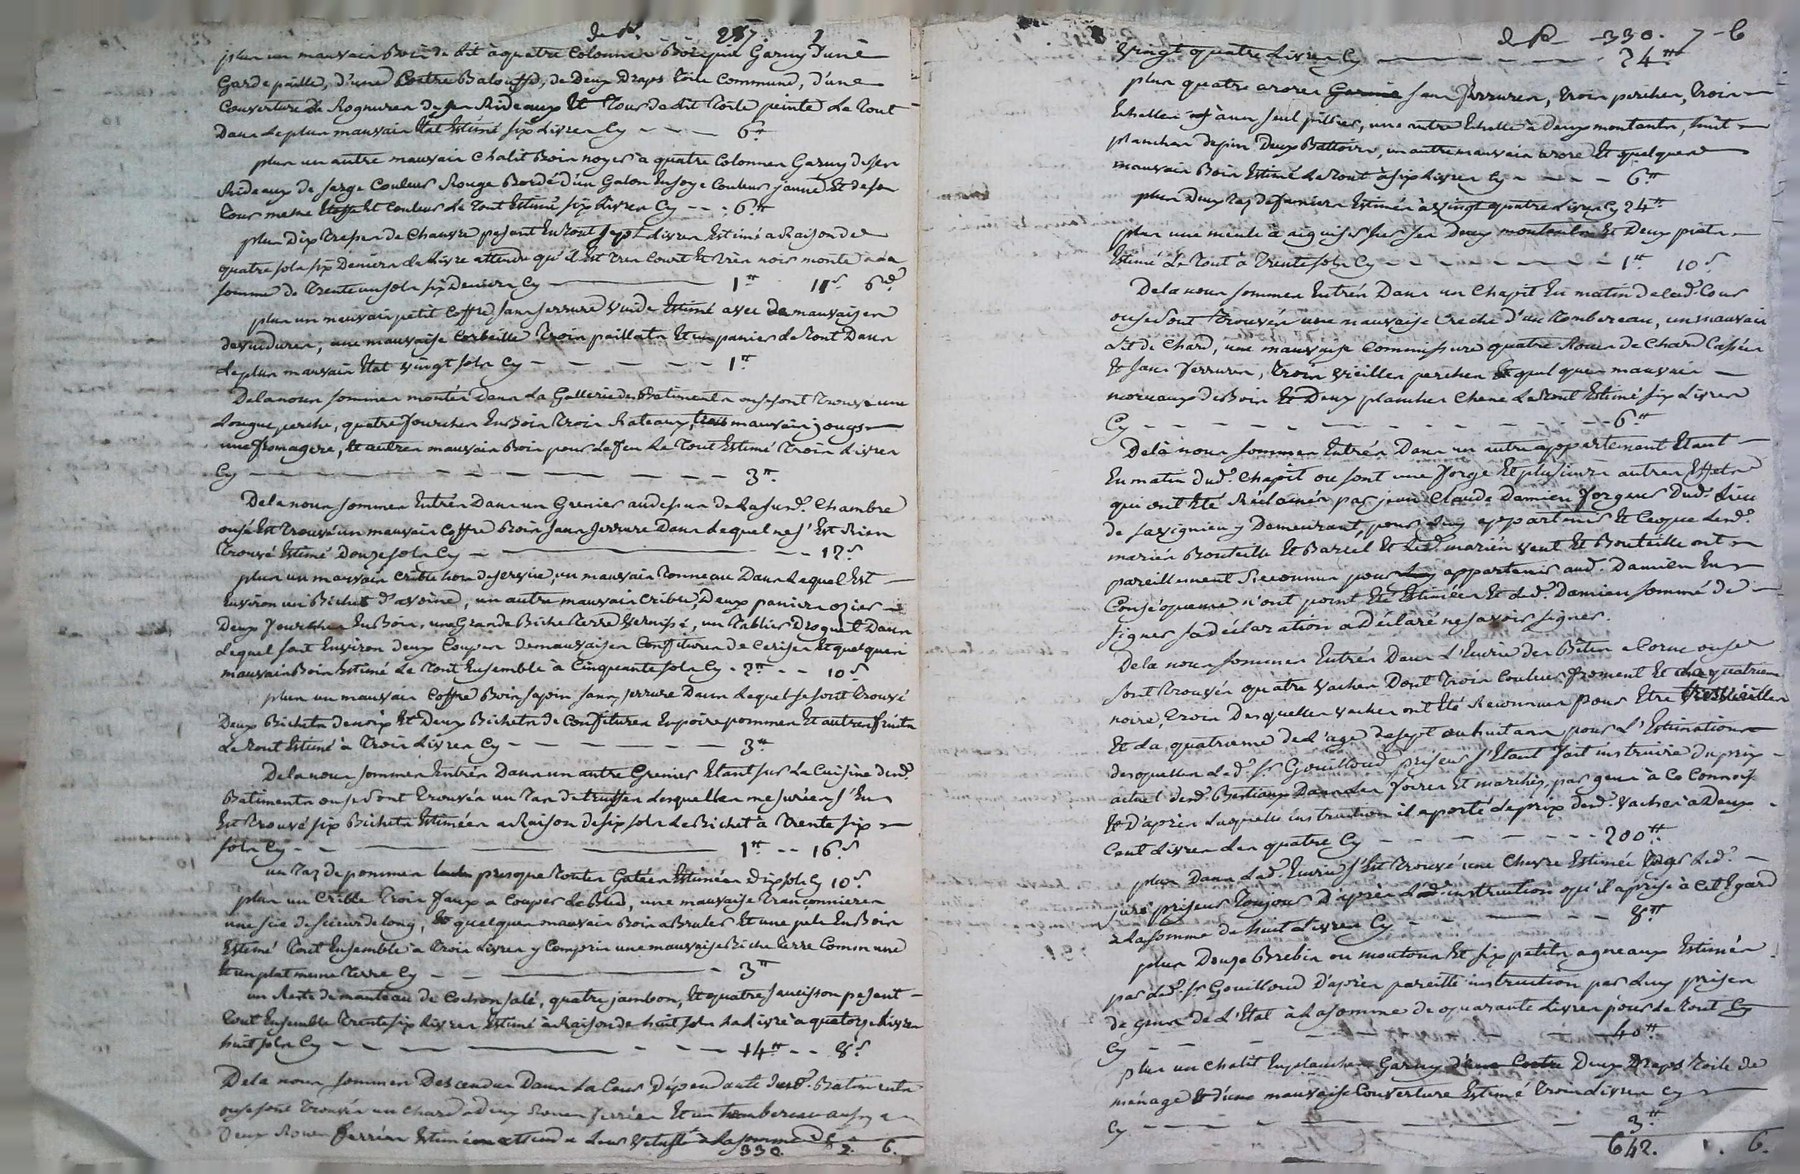 de p.t 287 2
plus un mauvais Bois de Lit à quatre Colonnes Garny d'une
Garde paille, d'une Coetre Balouffe, de Deux Draps Toile Commune, d'une
Couverture de Rognures de ses Rideaux Et Tour de Lit Toile peinte Le Tout
Dans Le plus mauvais Etat Estimé six Livres Cy - - - 6 tt
plus un autre mauvais Chalit Bois noyer à quatre Colonnes Garny de ses
Rideaux de serge Couleur Rouge Bordé d'un Galon En soye Couleur jaune Et de son
Tour meme Etoffe Et Couleur Le Tout Estimé six Livres Cy - - - 6 tt
plus Dix Tresses de Chanvre pesant En Tout sept Livres Estimé a Raison de
quatre sols six Deniers La Livre attendu qu'il Est Tres Court Et Très noir monte a La
somme de Trente un sols six Deniers Cy 1 tt 11 s 6 d
plus un mauvais petit Coffre sans serrure vuide Estimé avec de mauvaises
devuidures, une mauvaise Corbeille Trois paillats Et un panier Le Tout Dans
Le plus mauvais Etat vingt sols Cy - - - - - 1 tt
De La nous sommes montés Dans La Gallerie des Batiments ou se sont Trouvé une
Longue perche, quatre fourches En Bois Trois Rateaux, mauvais jougs
une fromagere, Et autres mauvais Bois pour Le feu Le Tout Estimé Trois Livres
Cy - - - - - - 3 tt
De La nous sommes Entrés Dans un Grenier au dessus de La sus d.e Chambre
ou s'est Trouvé un mauvais Coffre Bois sans serrure Dans Lequel ne s'Est Rien
Trouvé Estimé Douze sols Cy - - - 12 s
plus un mauvais Crible hors de service, un mauvais Tonneau Dans Lequel Est
Environ un Bichet d'avoine, un autre mauvais Crible, Deux paniers ozier
Deux fourches En Bois, une Grande Biche Terre vernissé, un Tablier Droguet Dans
Lequel sont Environ deux Coupes de mauvaises Confitures de Cerises Et quelques
mauvais Bois Estimé Le Tout Ensemble à Cinquante sols Cy - 2 tt - - 10 s
plus un mauvais Coffre Bois sapin sans serrure Dans Lequel se sont Trouvé
Deux Bichets de noix Et Deux Bichets de Confitures En poires pommes Et autres fruits
Le Tout Estimé à Trois Livres Cy - - - - - - 3 tt
De La nous sommes Entrés Dans un autre Grenier Etant sur La Cuisine des d.
Batiments ou se sont Trouvés un Tas de truffes Lesquelles mesurées s'En
Est Trouvé six Bichets Estimées a Raison de six sols Le Bichet à Trente six
sols Cy - - - 1 tt - - 16 s
un Tas de pommes presque Toutes Gatées Estimées Dix sols Cy 10 s
plus un Crible Trois faux a Couper Le Bled, une mauvaise Tranconniere
une scie de scieur de Long, Et quelques mauvais Bois a Bruler Et une pele En Bois
Estimé Tout Ensemble à Trois Livres y Compris une mauvaise Biche Terre Commune
Et un plat meme Terre Cy - - - 3 tt
un Reste de manteau de Cochon salé, quatre jambon, Et quatre saucisson pesant
Tout Ensemble Trente six Livres Estimé à Raison de huit sols La Livre a quatorze Livres
huit sols Cy - - - - - 14 tt - - 8 s
De La nous sommes Descendus Dans La Cour Dépendante des d. Batiments
ou se sont Trouvés un Chard a Deux Roues ferrées Et un Tombereau aussy a
Deux Roues ferrées Estimé attendu Leur Vetusté a La somme de
330. 2. 6.
de p.t 330. 7 - 6
vingt quatre Livres Cy - - - - - 24 tt
plus quatre arores sans ferrures, trois perches, Trois
Echelles à un seul pillier, une autre Echelle à Deux montants, huit
planches de pin Deux Battoirs, un autre mauvais arore Et quelques
mauvais Bois Estimé Le Tout à six Livres Cy - - - - 6 tt
plus Deux Tas de fumier Estimés à vingt quatre Livres Cy 24 tt
plus une meule à aiguiser sur ses Deux montants Et Deux pieds
Estimé Le Tout à Trente sols Cy - - - - - - 1 tt 10 s
De La nous sommes Entrés Dans un Chapit En matin de La d.e Cour
ou se sont Trouvés une mauvaise Creche d'un Tombereau, un mauvais
Lit de Chard, une mauvaise Commissure quatre Roues de Chard Cassées
Et sans ferrures, Trois vieilles perches Et quelques mauvais
morceaux de Bois Et Deux planches Chene Le Tout Estimé six Livres
Cy - - - - - - - - - 6 tt
De Là nous sommes Entrés Dans un autre appartement Etant
En matin du d. Chapit ou sont une forge Et plusieurs autres Effets
qui ont Eté Réclamés par jean Claude Damien forgeur Du d. Lieu
de savignieu y Demeurant, pour Luy appartenir Et Ce que Les d.
mariés Bouteille Et Barsel Et Les d. mariés vent Et Bouteille ont
pareillement Reconnu pour appartenir au d. Damien En
Conséquence n'ont point Eté Estimées Et Led. Damien sommé de
signer sa déclaration a Déclaré ne savoir signer.
De La nous sommes Entrés Dans L'Ecurie des Bêtes a Corne ou se
sont Trouvés quatre vaches Dont Trois Couleur froment Et La quatrieme
noire, Trois Desquelles vaches ont Eté Reconnues pour Etre tres vieilles
Et La quatrieme de L'age de sept ou huit ans pour L'Estimation
desquelles Le d. s.r Gouilloud priseur s'Etant fait instruire du prix
actuel des d. Bestiaux Dans Les foires Et marchés, par gens à Ce Connois
Et D'après Laquelle instruction il a porté Le prix des d. vaches à Deux
Cent Livres Les quatre Cy - - - - - - - 200 tt
plus Dans La d.e Ecurie s'Est Trouvé une Chevre Estimée Led.
juré priseur Toujours D'après La d.e instruction qu'il a prise à Cet Egard
a La somme de huit Livres Cy - - - - 8 tt
plus Douze Brebis ou moutons Et six petits agneaux Estimés
par Le d. s.r Gouilloud D'après pareille instruction par Luy prises
de gens de L'Etat à La somme de quarante Livres pour Le Tout Cy
Cy - - - - - - - 40 tt
plus un Chalit En planches Garny Deux Draps Toile de
ménage Et d'une mauvaise Couverture Estimé Trois Livres Cy
Cy - - - - - - - 3 tt
642. 1. 6.